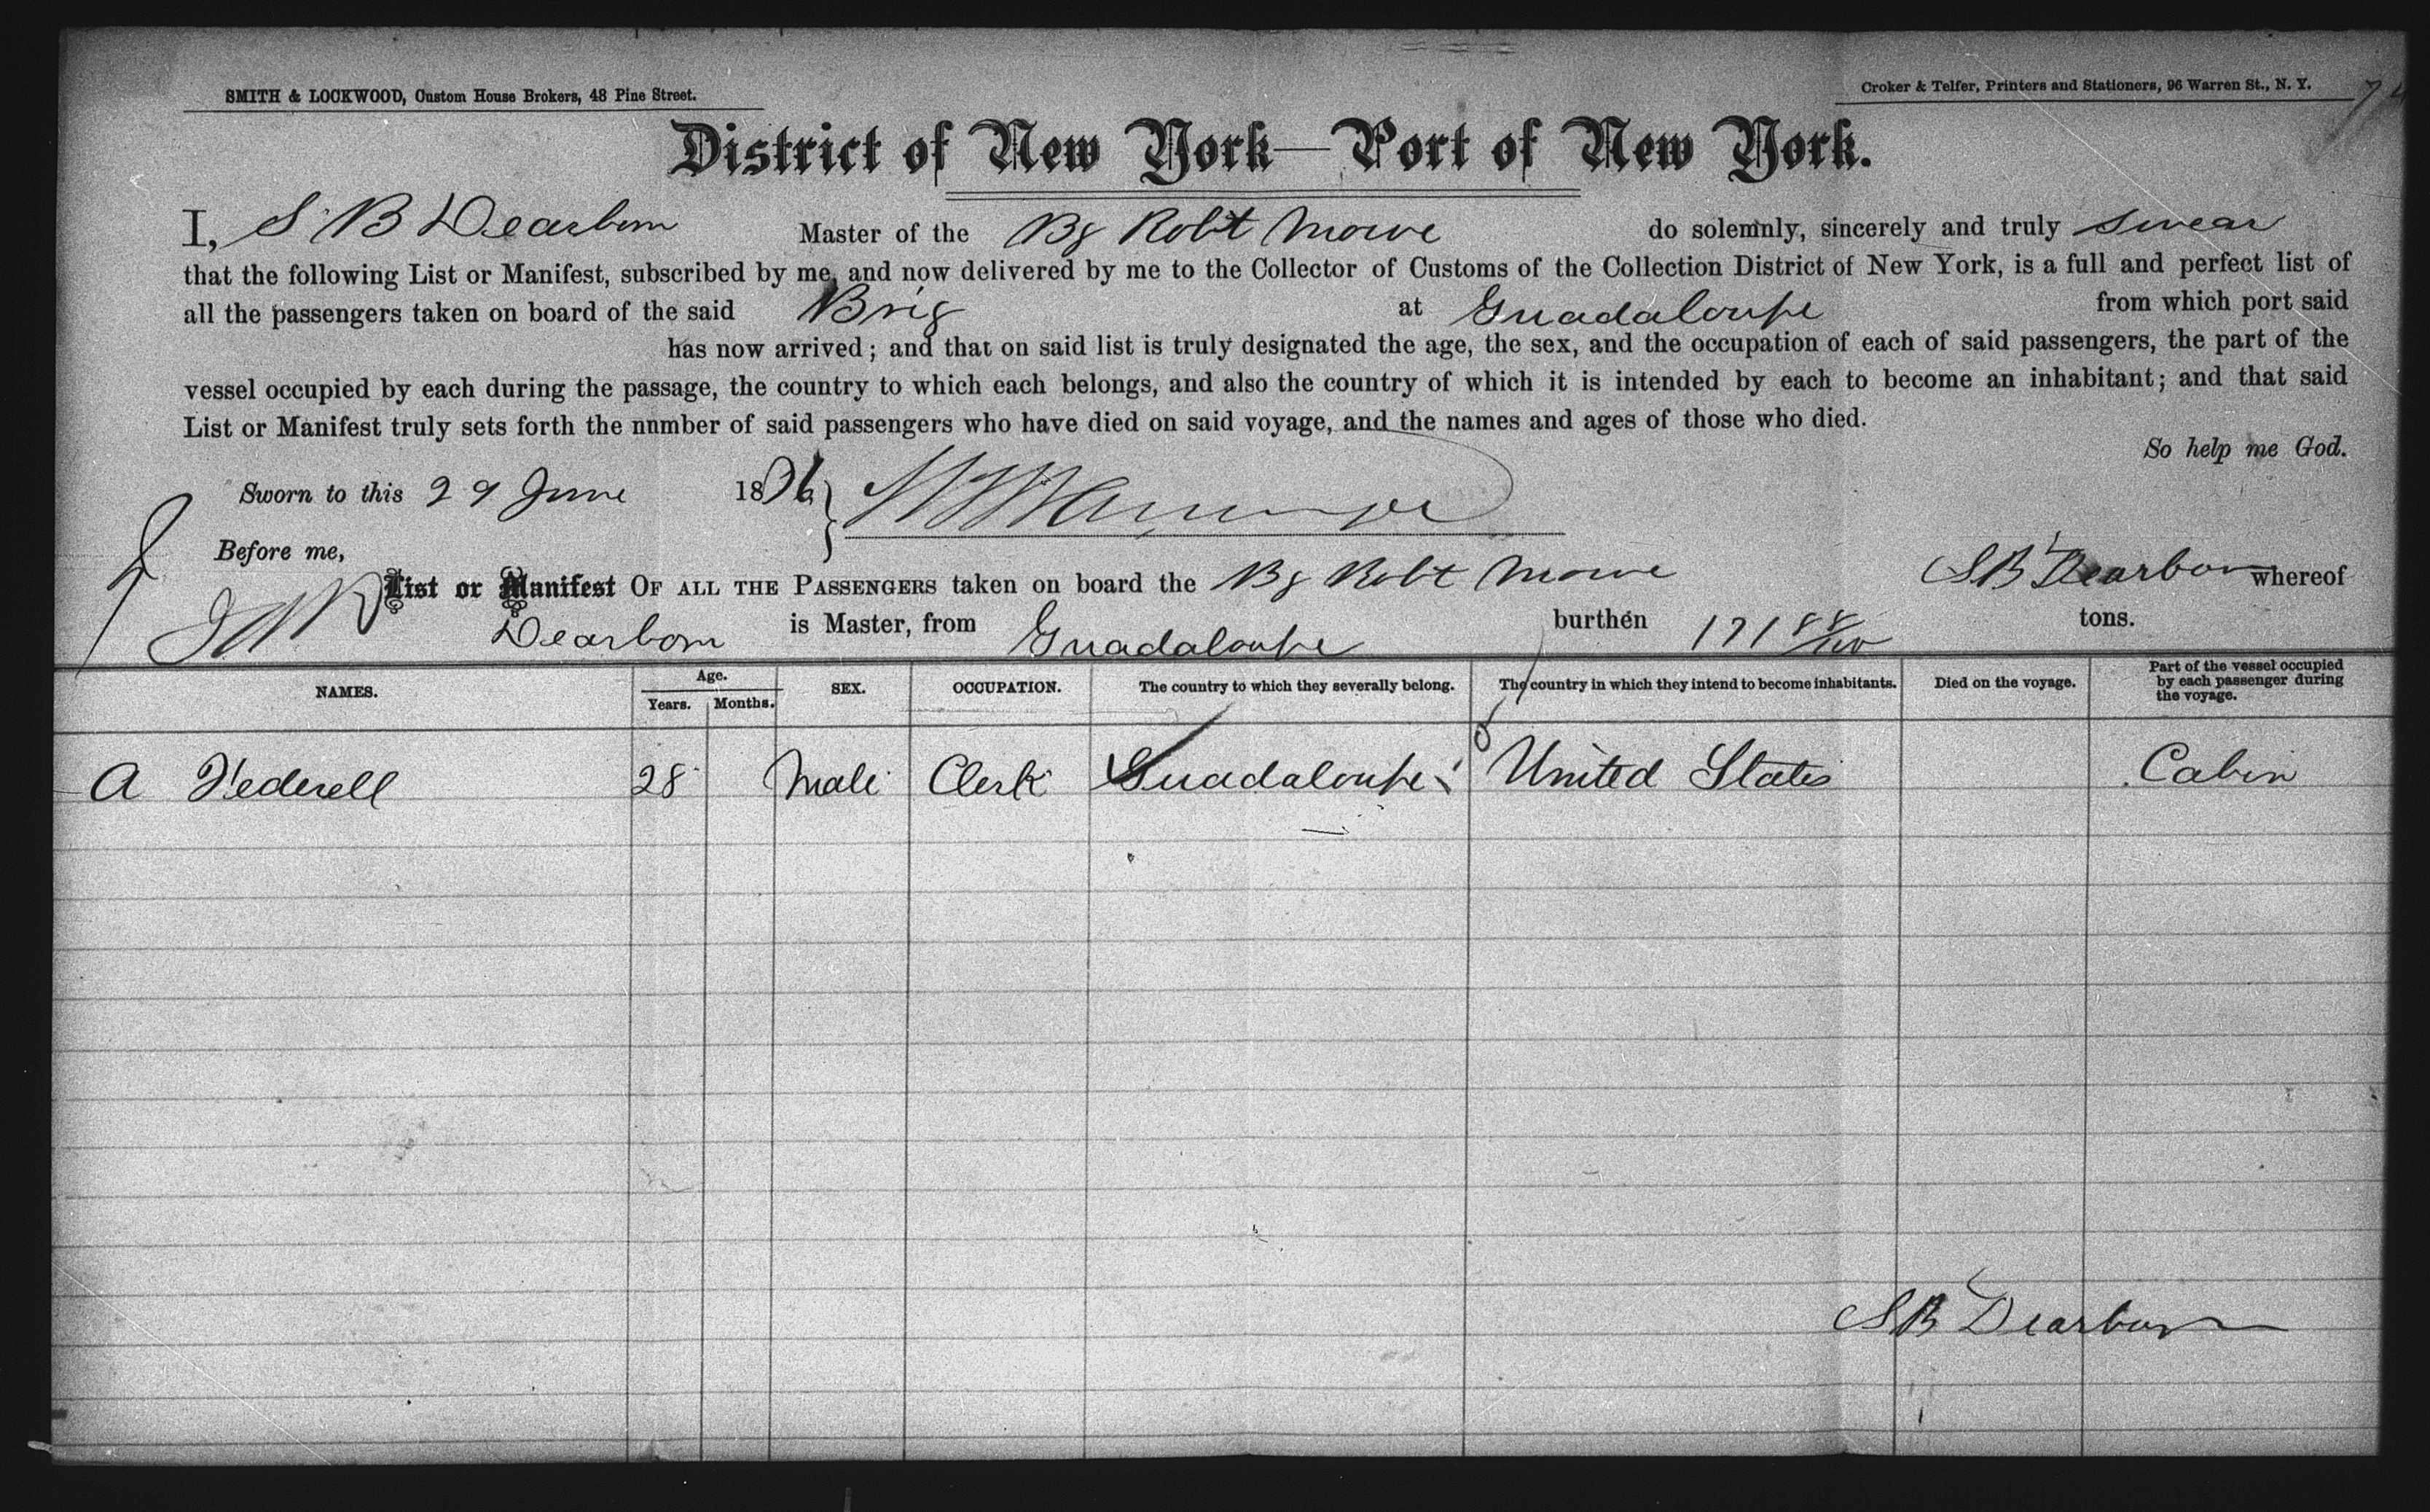 SMITH & LOCKWOOD, Custom House Brokers, 48 Pine Street.
Croker & Telfer, Printers and Stationers, 96 Warren St., N. Y.
District of New York—Port of New York.
I, S B Dearborn Master of the Bg Robt Mowe do solemnly, sincerely and truly swear
that the following List or Manifest, subscribed by me, and now delivered by me to the Collector of Customs of the Collection District of New York, is a full and perfect list of
all the passengers taken on board of the said Brig at Guadaloupe from which port said
has now arrived; and that on said list is truly designated the age, the sex, and the occupation of each of said passengers, the part of the
vessel occupied by each during the passage, the country to which each belongs, and also the country of which it is intended by each to become an inhabitant; and that said
List or Manifest truly sets forth the nnmber of said passengers who have died on said voyage, and the names and ages of those who died.
So help me God.
Sworn to this 29 June 1876
Before me,
S B Dearborn
List or Manifest OF ALL THE PASSENGERS taken on board the Bg Robt Mowe whereof
Dearborn is Master, from Guadaloupe burthen 171 88/100 tons.
NAMES. Age. Years. Months. SEX. OCCUPATION. The country to which they severally belong. The country in which they intend to become inhabitants. Died on the voyage. Part of the vessel occupied by each passenger during the voyage.
A Federell 28 Male Clerk Guadaloupe United States Cabin
S B Dearborn